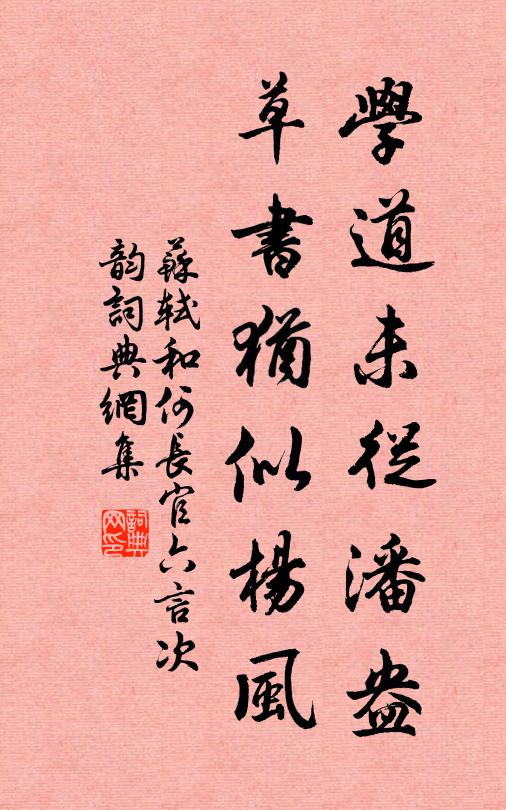 學道未從潘盎
草書猶似楊風
蘇軾和何長官六言次
韵詞典網集
詞典
网印